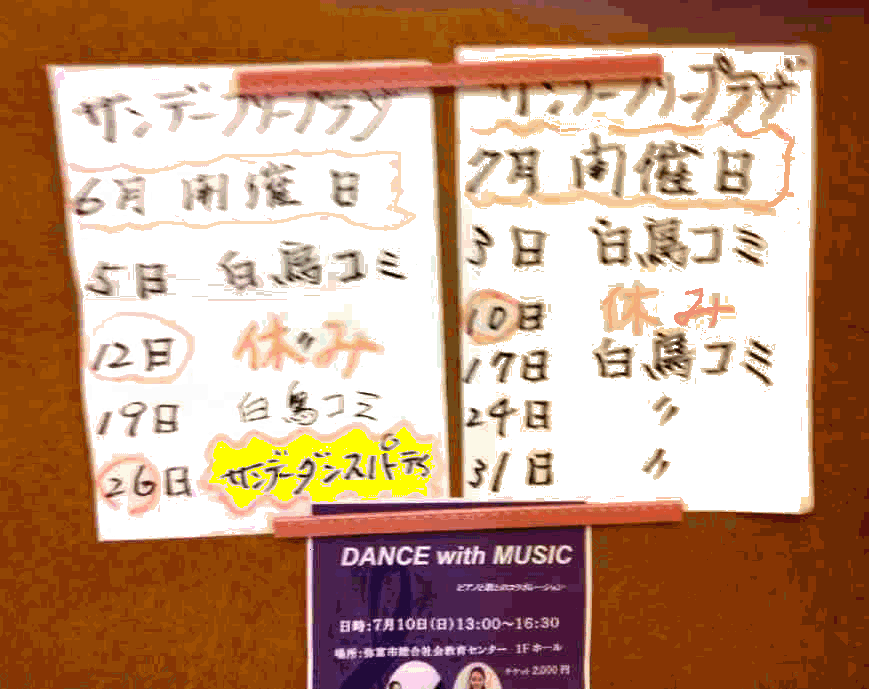 サンデーフリープラザ
6月開催日
5日 白鳥コミ
12日 休み
19日 白鳥コミ
26日 サンデーダンスパーティ
サンデーフリープラザ
7月開催日
3日 白鳥コミ
10日 休み
17日 白鳥コミ
24日 〃
31日 〃
DANCE with MUSIC
ピアノと歌とのコラボレーション
日時:7月10日(日)13:00〜16:30
場所:弥富市総合社会教育センター 1Fホール
チケット2,000円